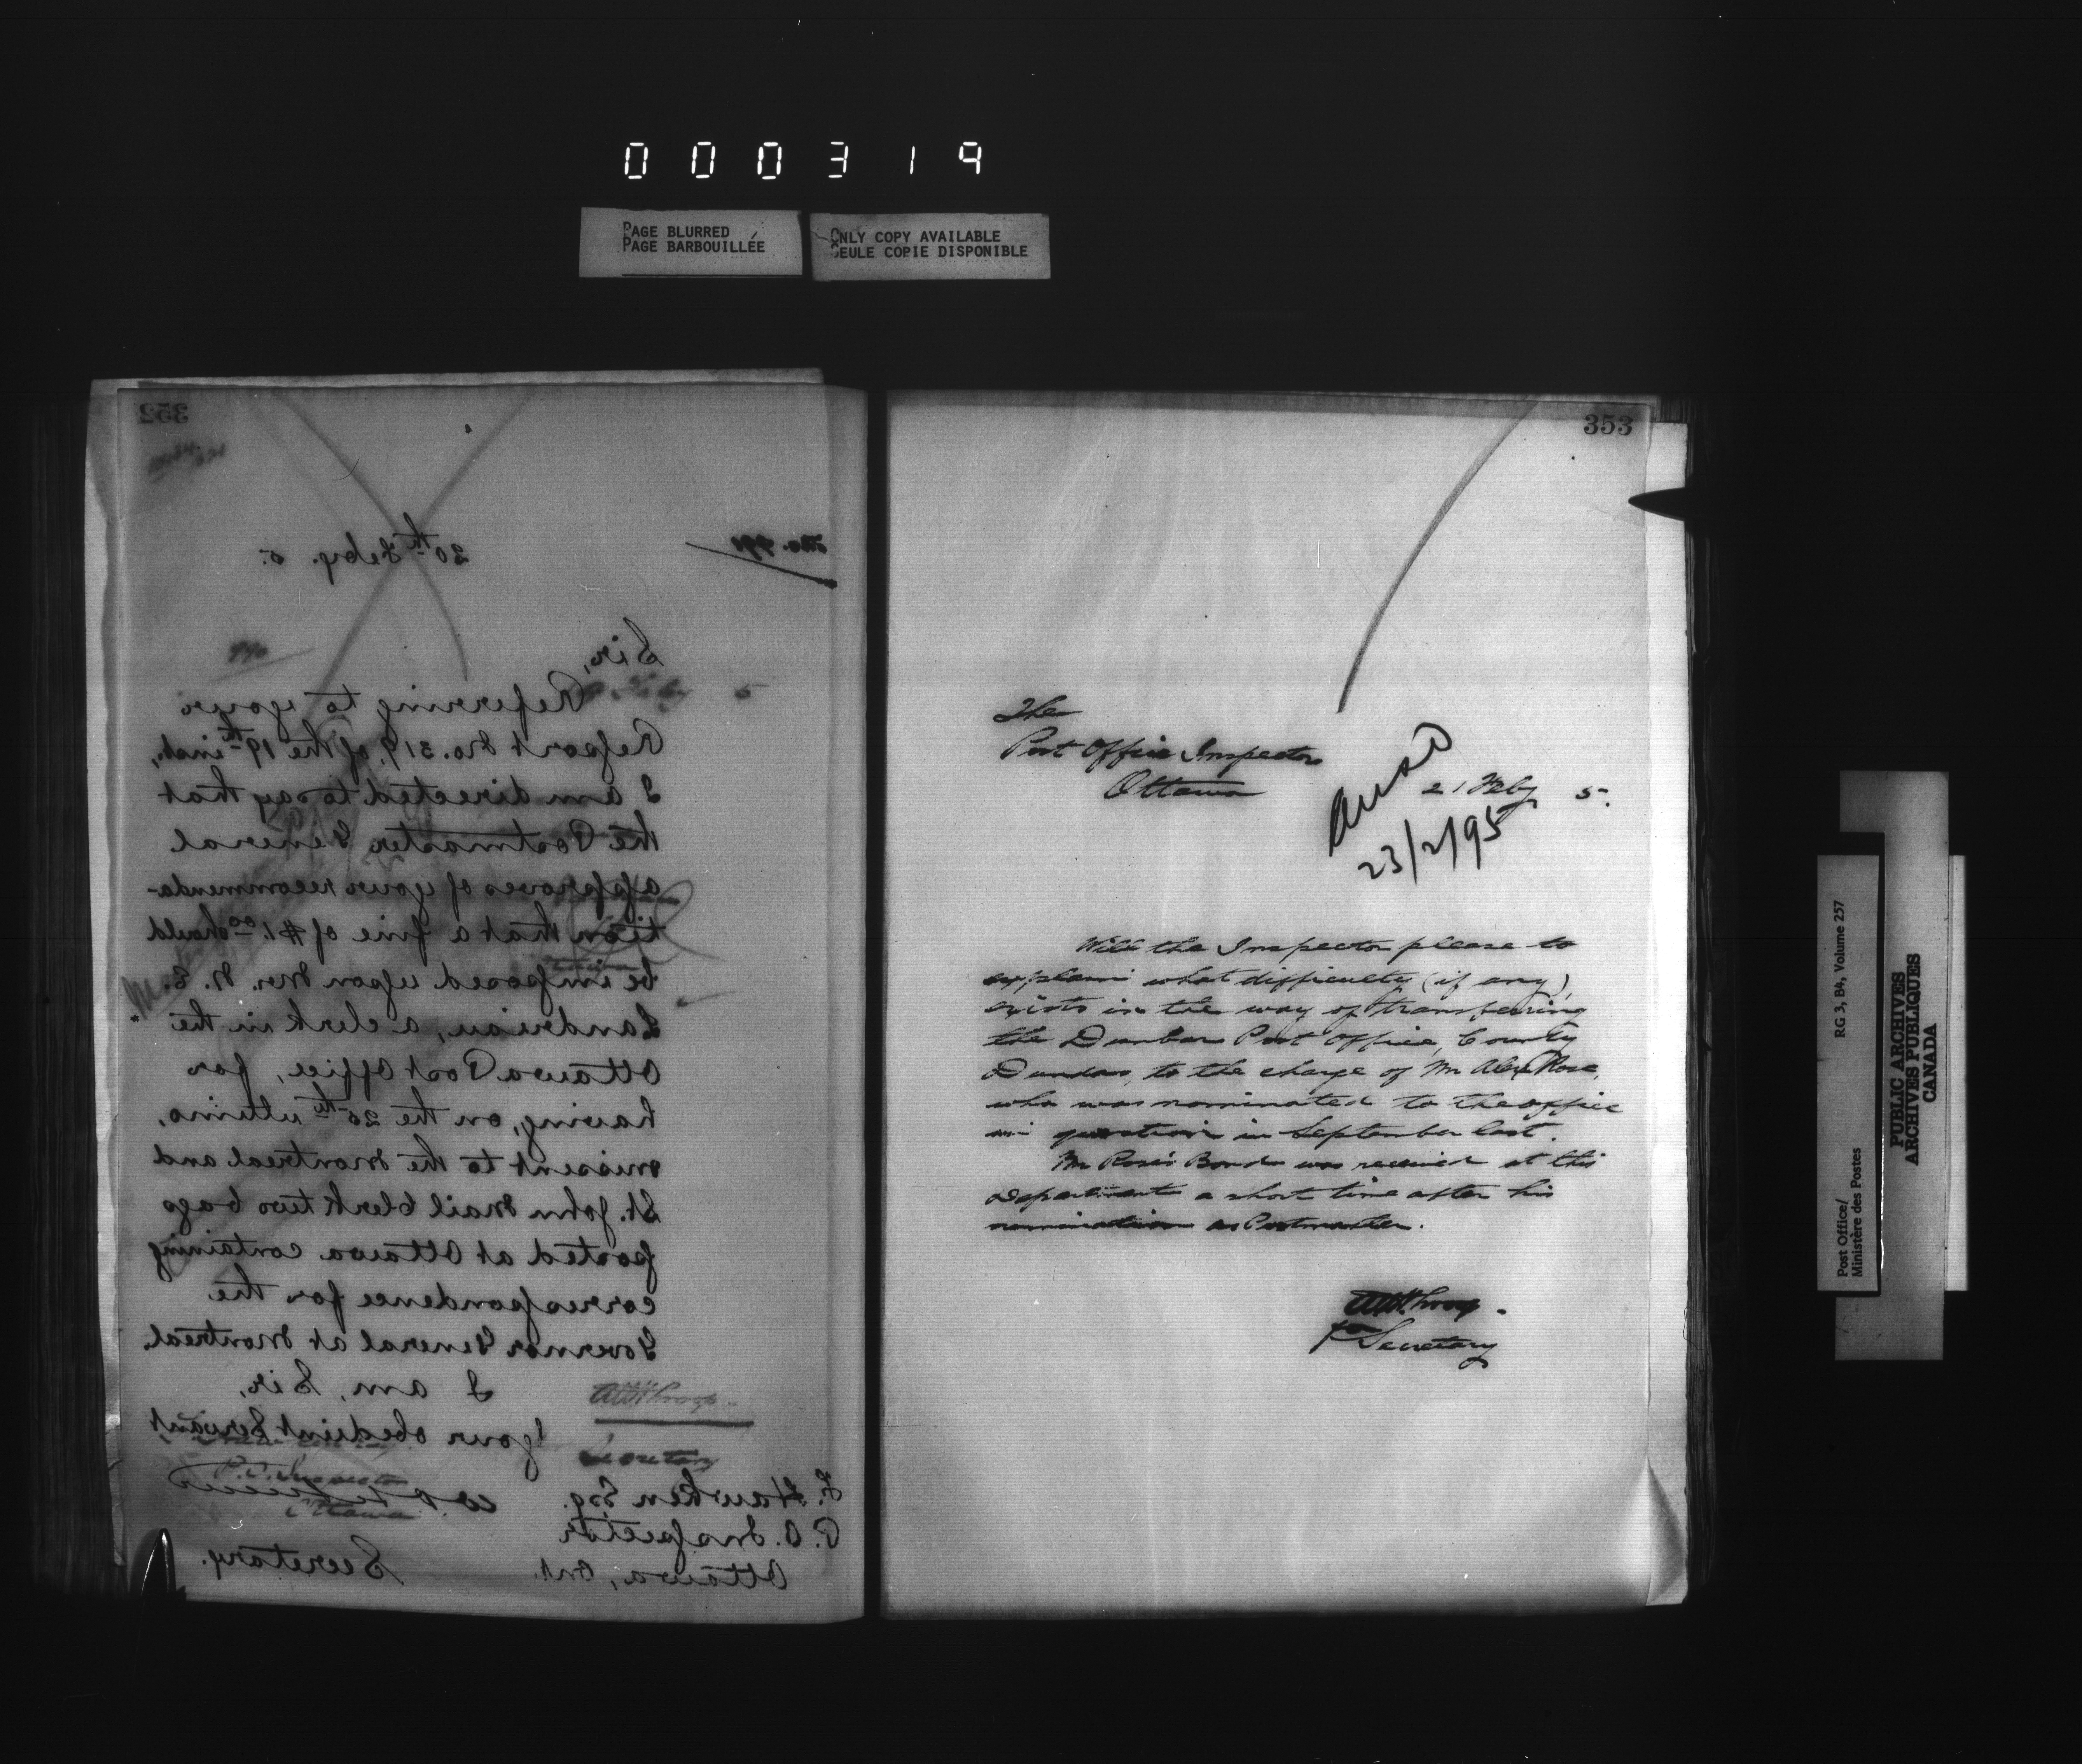 000319
PAGE BLURRED
PAGE BARBOUILLÉE
ONLY COPY AVAILABLE
SEULE COPIE DISPONIBLE
352
20th Feby. 5.
Sir,
Referring to your
Report No. 319, of the 19th inst,
I am directed to say that
the Postmaster General
approves of your recommenda-
tion that a fine of $1.00 should
be imposed upon Mr. N. E.
Landriau, a clerk in the
Ottawa Post Office, for
having, on the 25th ultimo,
missent to the Montreal and
St. John Mail Clerk two bags
posted at Ottawa containing
correspondence for the
Governor General at Montreal.
I am, Sir,
Your obedient Servant
Secretary.
F. Hawken Esq.
P. O. Inspector
Ottawa, Ont.
Secretary
P.O. Inspector
Ottawa
353
The
Post Office Inspector
Ottawa
21 Feby 5.
Ansd
23/2/95
Will the Inspector please to
explain what difficulty (if any)
exists in the way of transferring
the Dunbar Post Office, County
Dundas, to the charge of Mr Alex Rose,
who was nominated to the office
in question in September last.
Mr Rose's Bond was received at this
Department a short time after his
nomination as Postmaster.
for Secretary
Post Office/
Ministère des Postes
RG 3, B4, Volume 257
PUBLIC ARCHIVES
ARCHIVES PUBLIQUES
CANADA